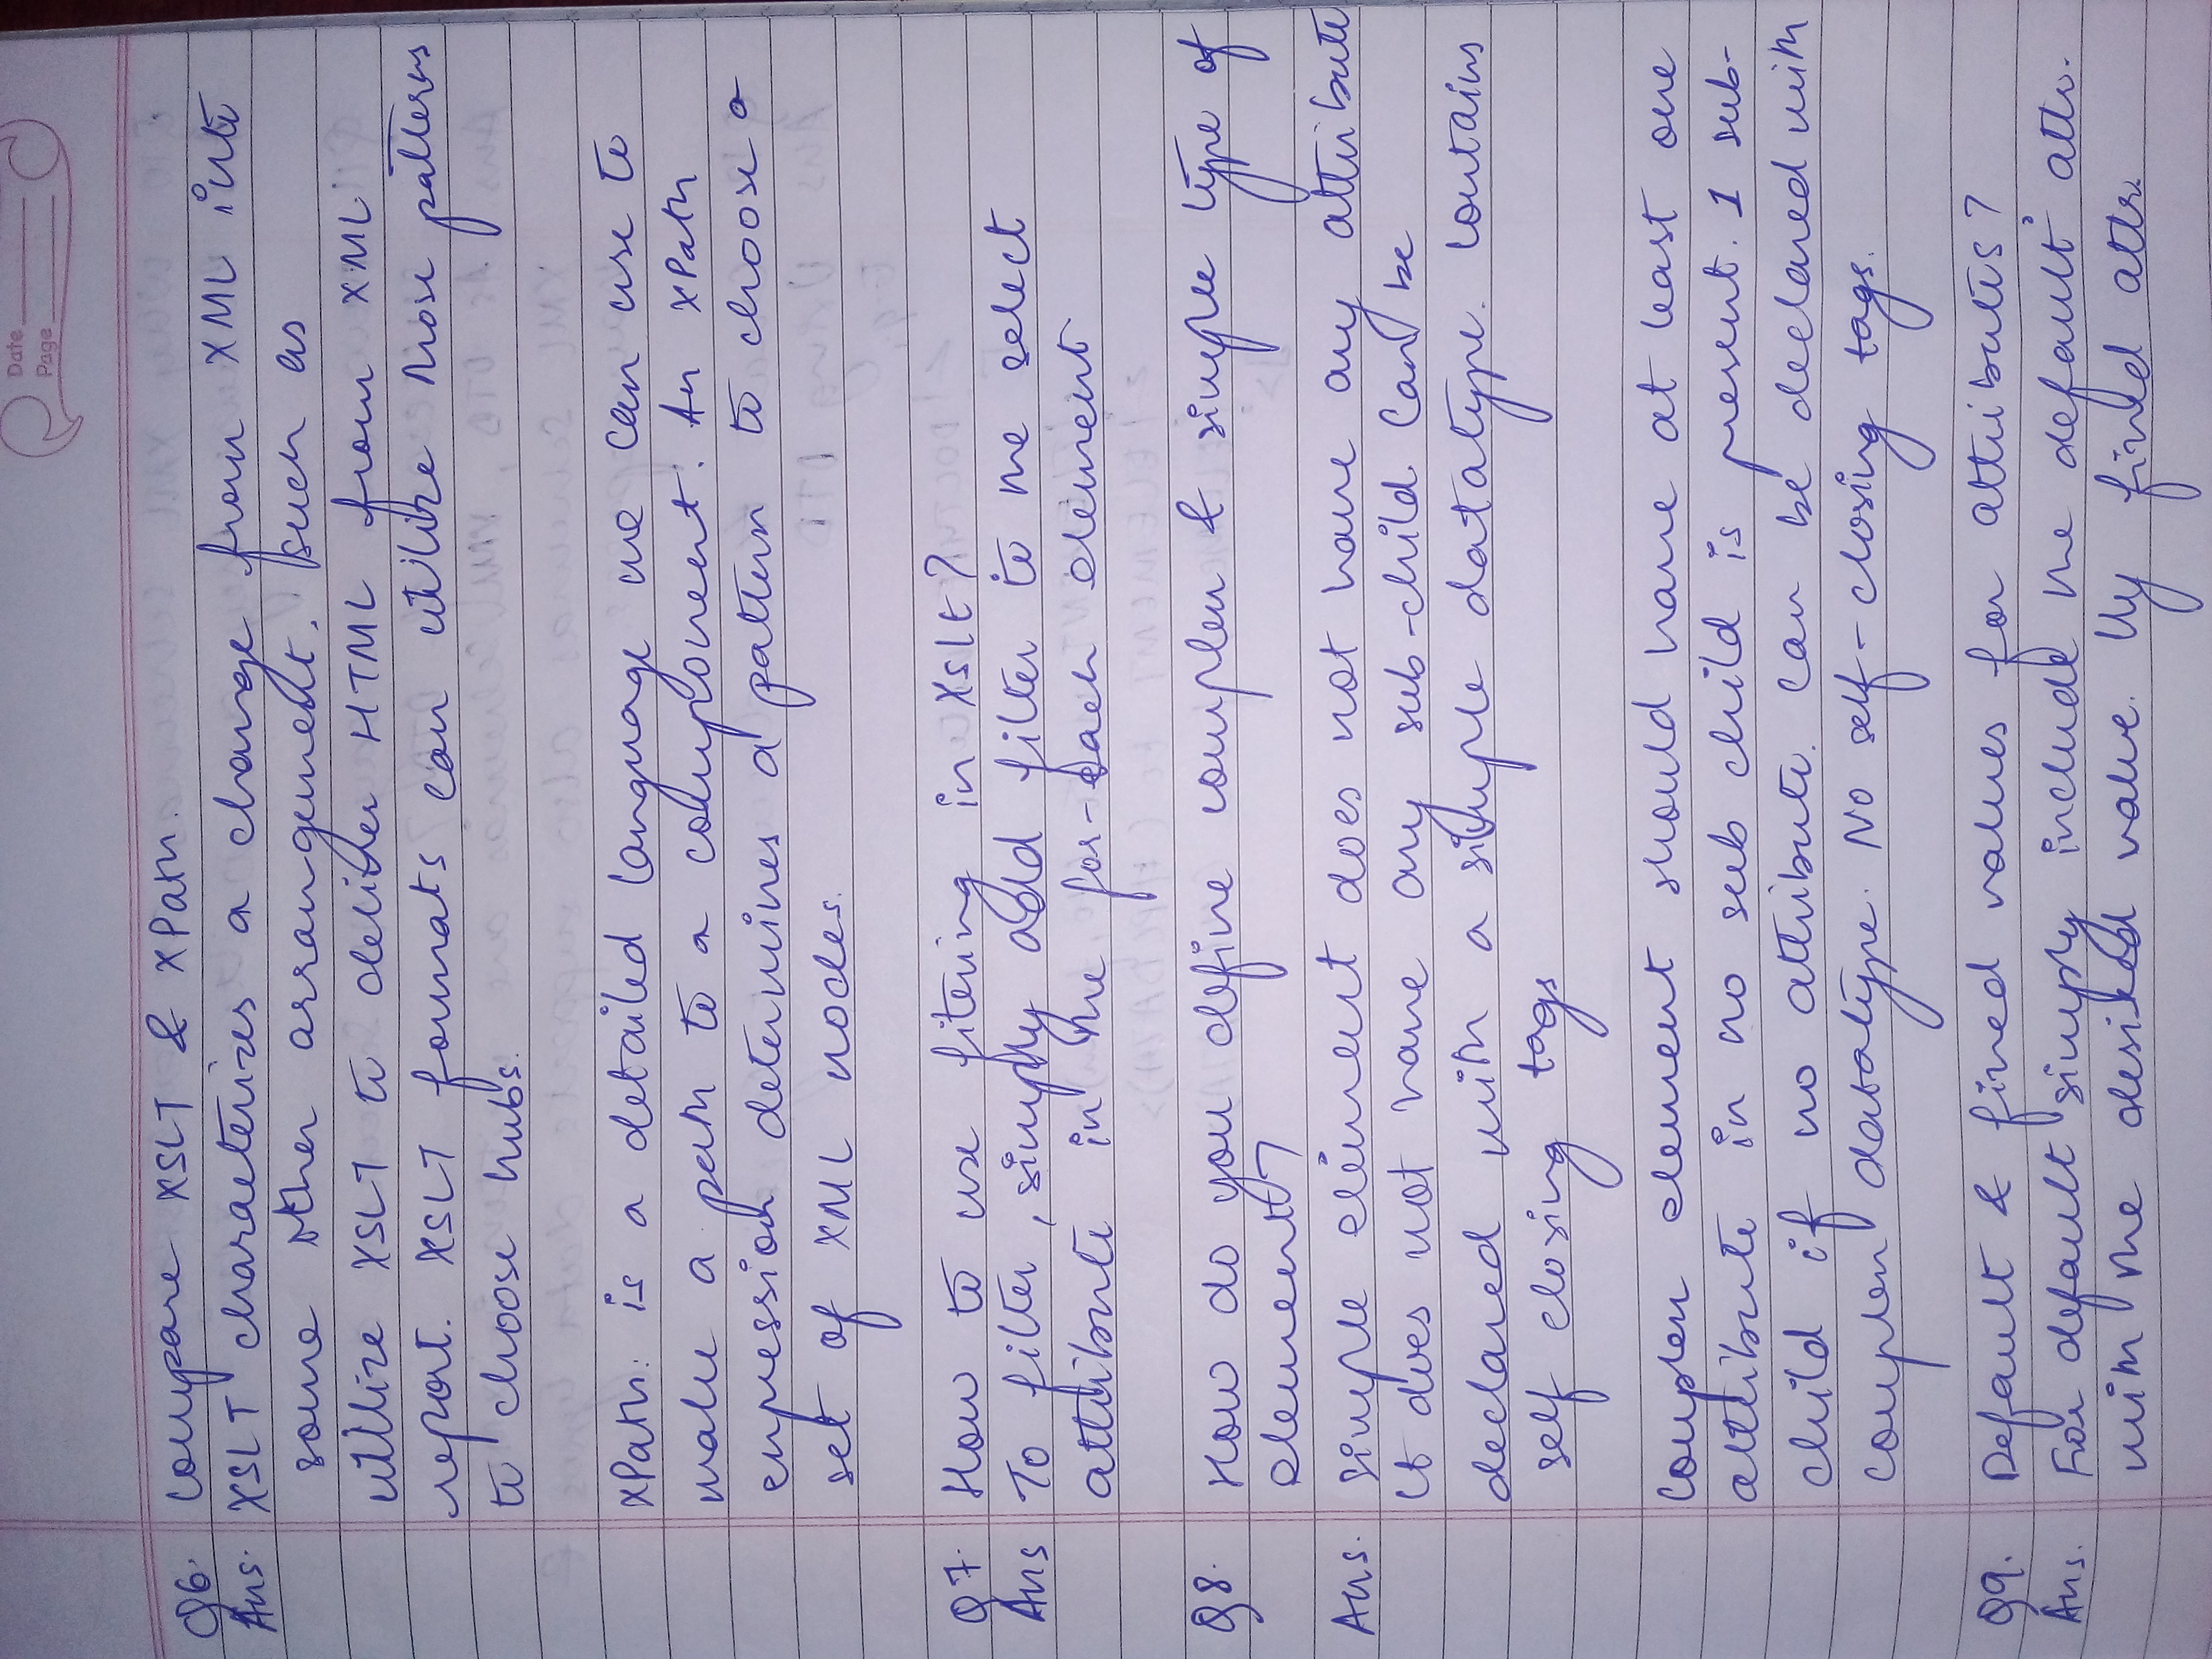 Date
Page
Q6. Compare XSLT & XPath.
Ans. XSLT characterizes a change from XML into
some other arrangement. Such as
utilize XSLT to deliver HTML from XML
report. XSLT formats can utilize those patterns
to choose hubs.
XPath: is a detailed language we can use to
make a path to a component. An XPath
expression determines a pattern to choose a
set of XML nodes.
Q7. How to use fitering in Xslt?
Ans To filter, simply add filter to the select
attribute in the for-each element
Q8. How do you define complex & simple type of
element?
Ans. Simple element does not have any attribute
It does not have any sub-child. Can be
declared with a simple datatype. Contains
self closing tags
Complex element should have at least one
attribute in no sub child is present. 1 sub-
child if no attribute. Can be declared with
complex datatype. No self-closing tags.
Q9. Default & fixed values for attributes?
Ans. For default simply include the default attr.
with the desired value. lly fixed attr.